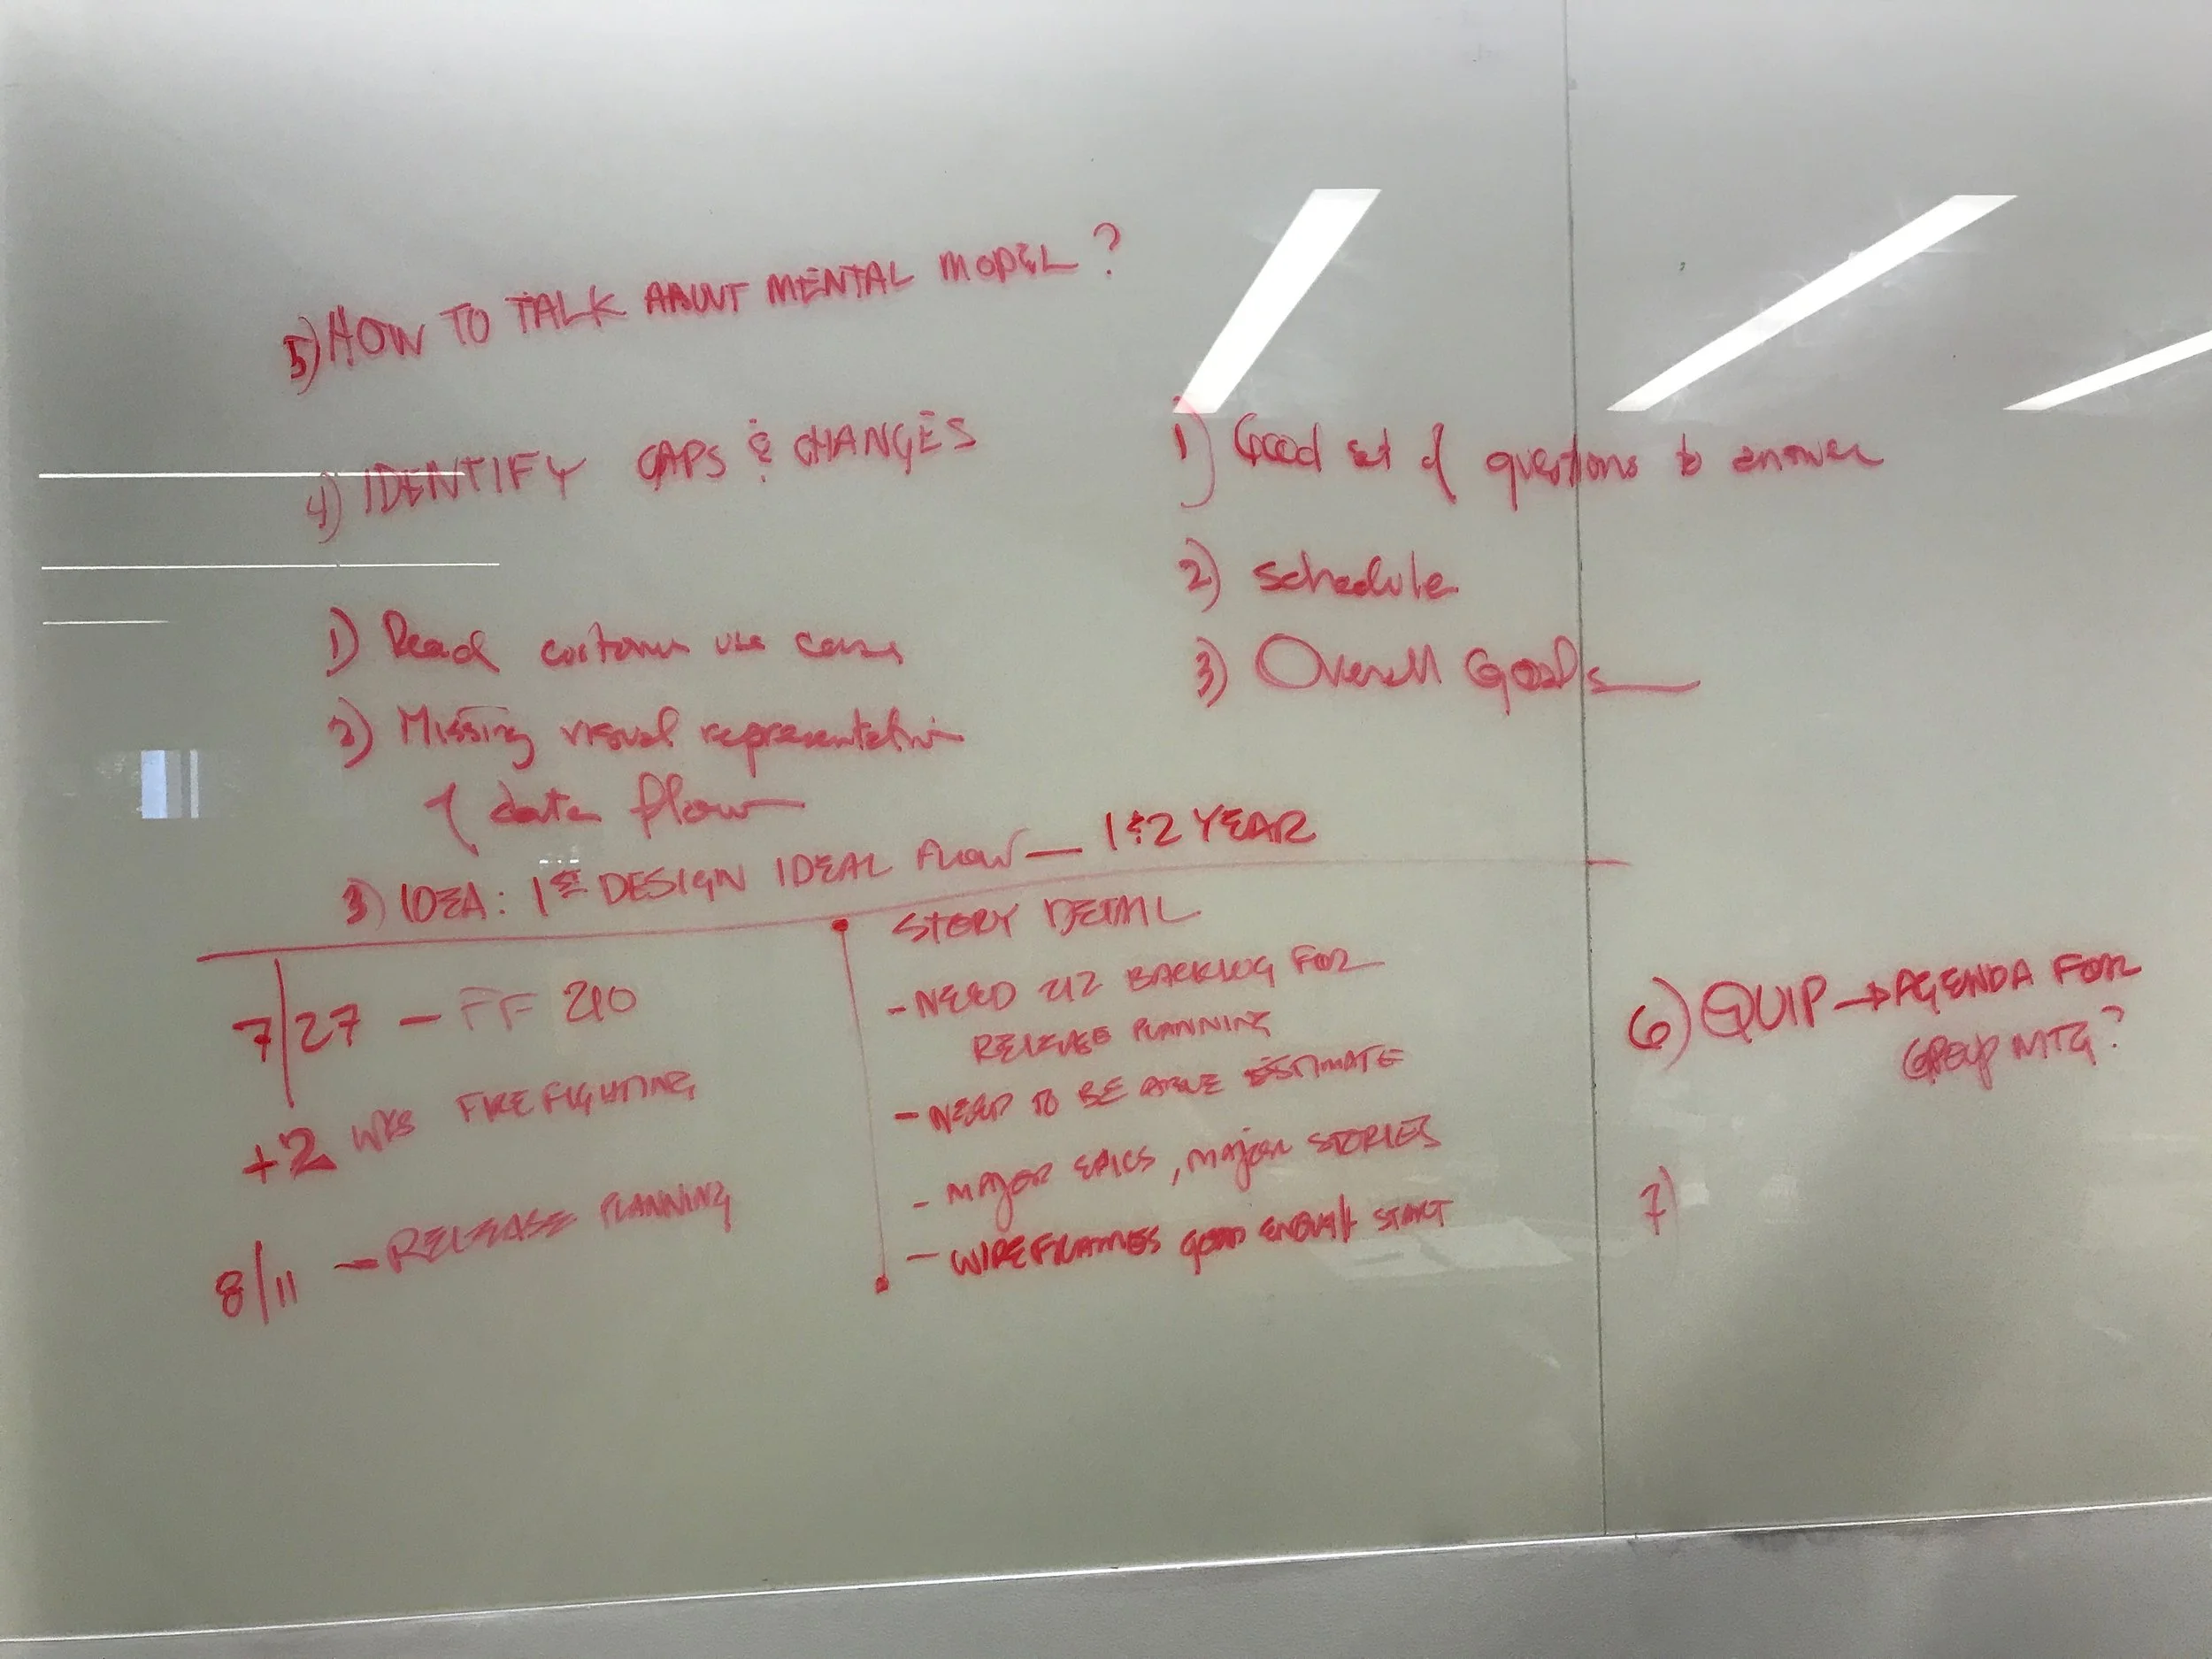 5) HOW TO TALK ABOUT MENTAL MODEL ?
4) IDENTIFY GAPS & CHANGES
1) Read customer use cases
2) Missing visual representation
of data flow
3) IDEA: 1ST DESIGN IDEAL FLOW — 1&2 YEAR
1) Good set of questions to answer
2) Schedule
3) Overall Goals
7/27 — FF 210
+2 WKS FIREFIGHTING
8/11 — RELEASE PLANNING
STORY DETAIL
- NEED 212 BACKLOG FOR
RELEASE PLANNING
- NEED TO BE ABLE ESTIMATE
- MAJOR EPICS, MAJOR STORIES
- WIREFRAMES GOOD ENOUGH START
6) QUIP → AGENDA FOR
GROUP MTG?
7)